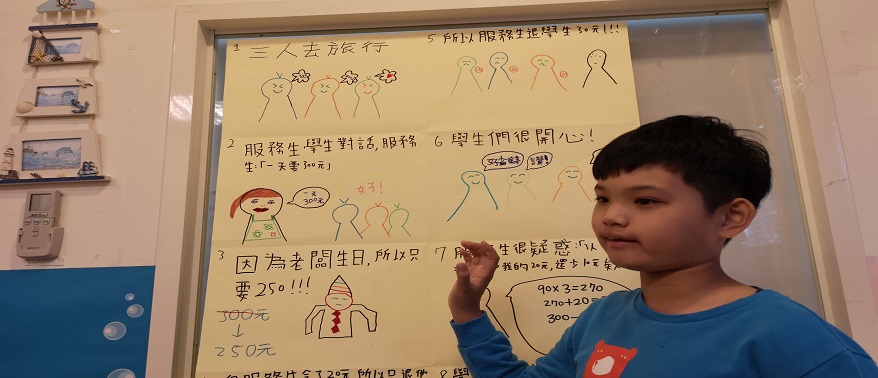 1 三人去旅行
2 服務生學生對話,服務
生:「一天要300元」
一天
300元
好!
3 因為老闆生日,所以只
要250!!!
300元
↓
250元
20元,所以只退他
5 所以服務生退學生30元!!!
6 學生們很開心!
讚!
7 服
生很疑惑:「
我的20元,還少10元
90×3=270
270+20=
300-
8 學